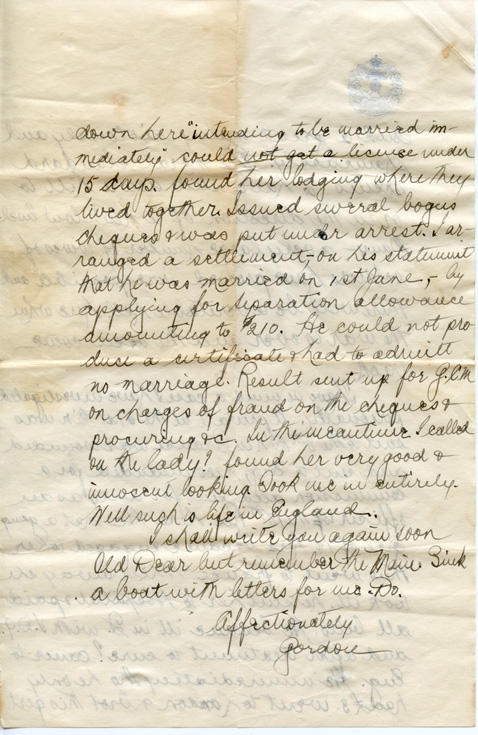 down here "intending to be married im-
mediately" could not get a license under
15 days. found her lodging where they
lived together. Issued several bogus
cheques & was put under arrest. I ar-
ranged a settlement - on his statement
that he was married on 1st June, - by
applying for separation allowance
amounting to $210. He could not pro-
duce a certificate & had to admitt
no marriage. Result sent up for G.C.M
on charges of fraud on the cheques &
procuring &c. In the meantime I called
on the lady? found her very good &
innocent looking. Took me in entirely.
Well such is life in England.
I shall write you again soon
Old Dear but remember the Maine Sink
a boat with letters for me. Do.
Affectionately
Gordon